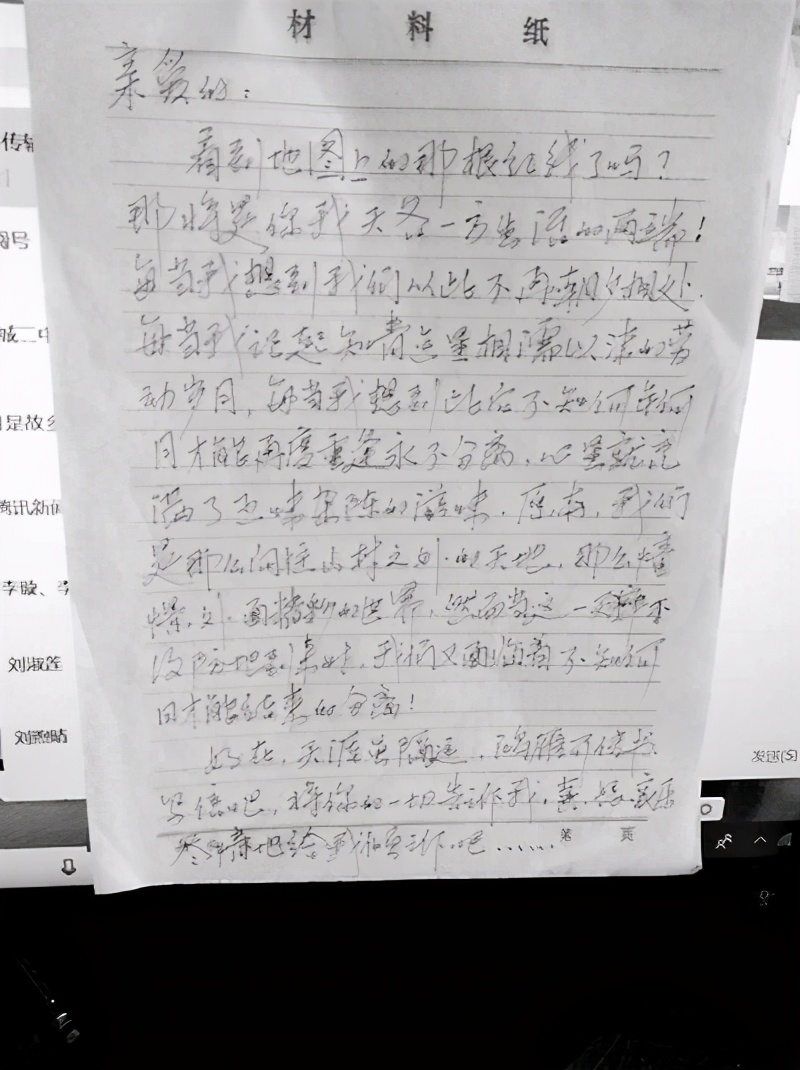 材料纸
亲爱的：
看到地图上的那根红线了吗？
那将是你我天各一方生活的两端！
每当我想到我们从此不再朝夕相处，
每当我记起知青点里相濡以沫的劳
动岁月，每当我想到此后不知何年何
月才能再度重逢永不分离，心里就充
满了五味杂陈的滋味。原本，我们
是那么向往山村之外的天地，那么憧
憬外面精彩的世界，然而当这一天猝不
及防地到来时，我们又面临着不知何
日才能结束的分离！
好在，天涯虽隔远，鸿雁可传书。
写信吧，将你的一切告诉我，喜怒哀乐
地给我倾诉吧……
第 页
传输
是故乡
腾讯新闻
李
刘淑莲
刘
发送(S)